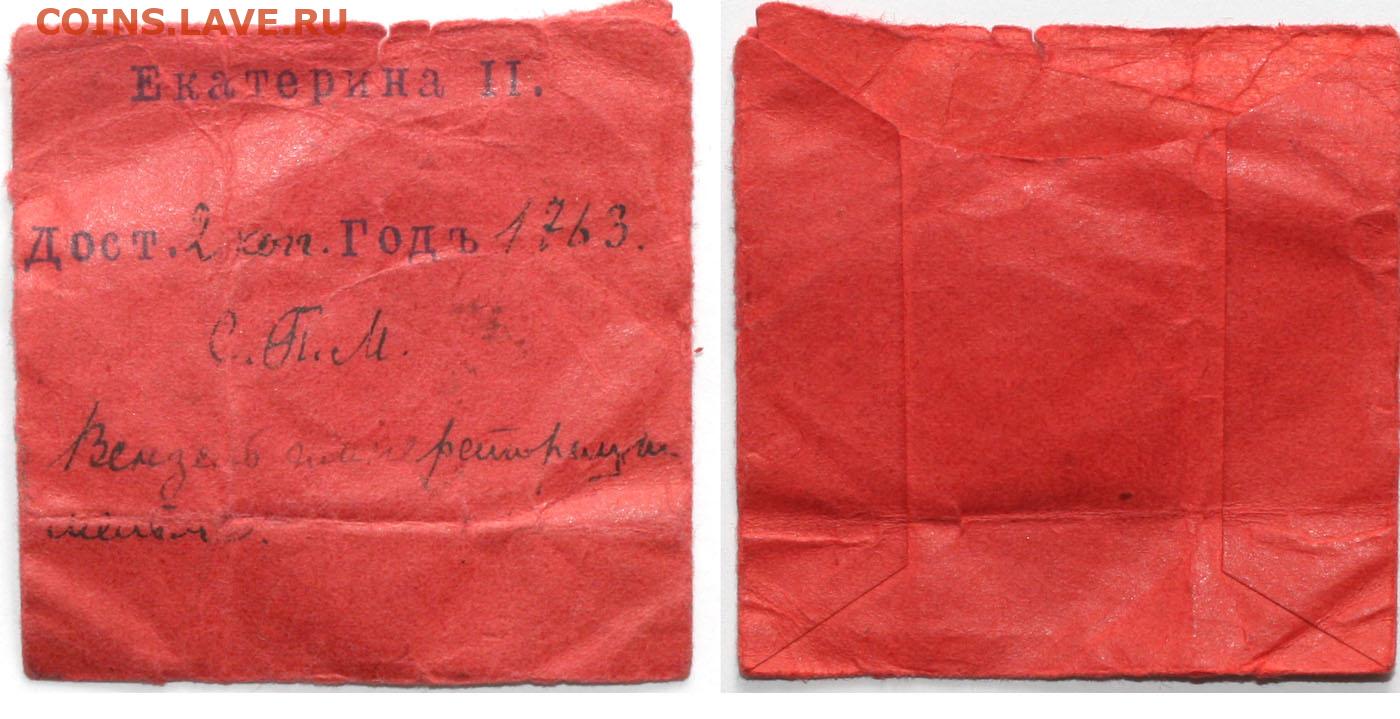 COINS.LAVE.RU
Екатерина II.
Дост. 2 коп. Годъ 1763.
С.П.М.
Вензель императрицы